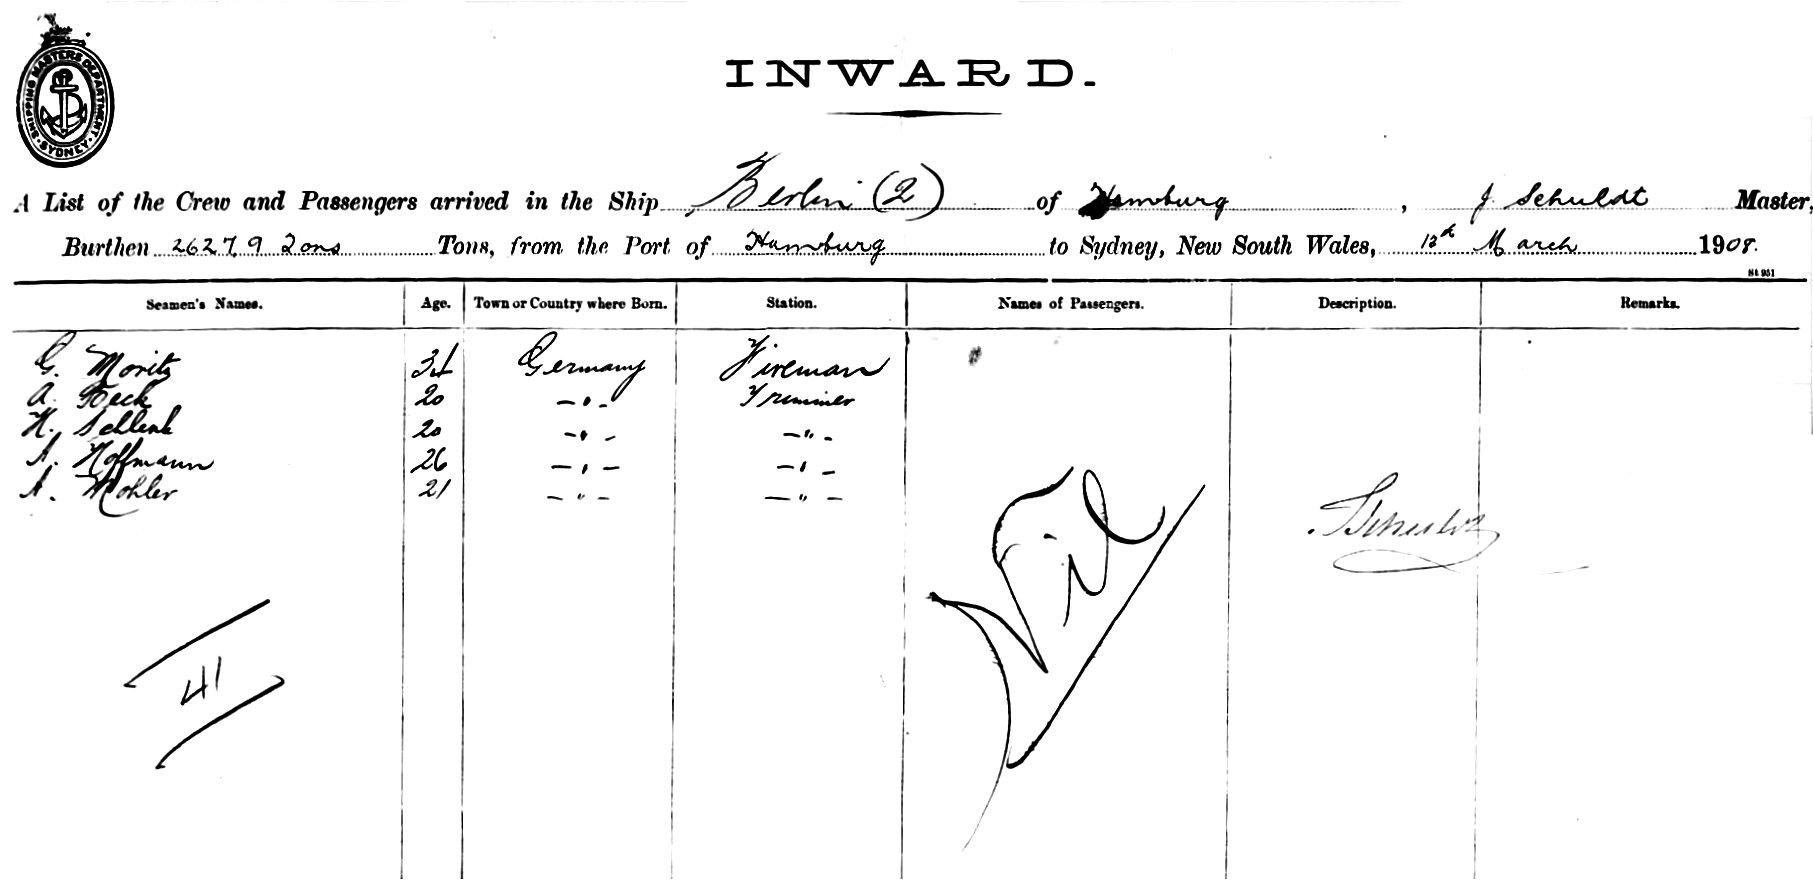 SHIPPING MASTERS DEPARTMENT · SYDNEY ·
INWARD.
A List of the Crew and Passengers arrived in the Ship Berlin (2) of Hamburg, J. Schuldt Master,
Burthen 2627,9 Tons Tons, from the Port of Hamburg to Sydney, New South Wales, 12th March 1908.
St 951
Seamen's Names. Age. Town or Country where Born. Station. Names of Passengers. Description. Remarks.
G. Moritz 34 Germany Fireman
A. Beck 20 – " – Trimmer
H. Schlenk 20 – " – – " –
A. Hoffmann 26 – " – – " –
A. Mohler 21 – " – – " –
Nil
J Schuldt
41